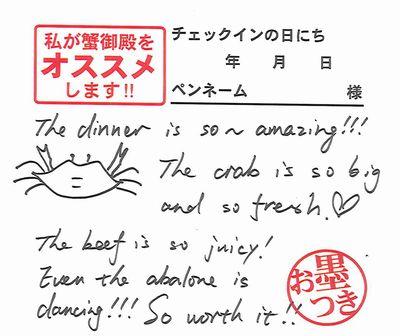 私が蟹御殿を
オススメ
します!!
チェックインの日にち
年 月 日
ペンネーム 様
The dinner is so~ amazing!!!
The crab is so big
and so fresh.♡
The beef is so juicy!
Even the abalone is
dancing!!! So worth it!!
お墨つき